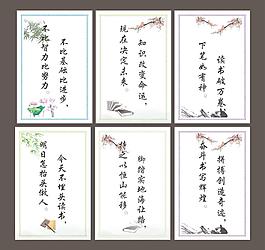 不比基础比进步，
不比智力比努力。
知识改变命运，
现在决定未来。
读书破万卷，
下笔如有神。
今天不埋头读书，
明日怎抬头做人。
脚踏实地海让路，
持之以恒山能移。
拼搏创造奇迹，
奋斗书写辉煌。